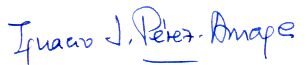 Ignacio J. Pérez-Arriaga